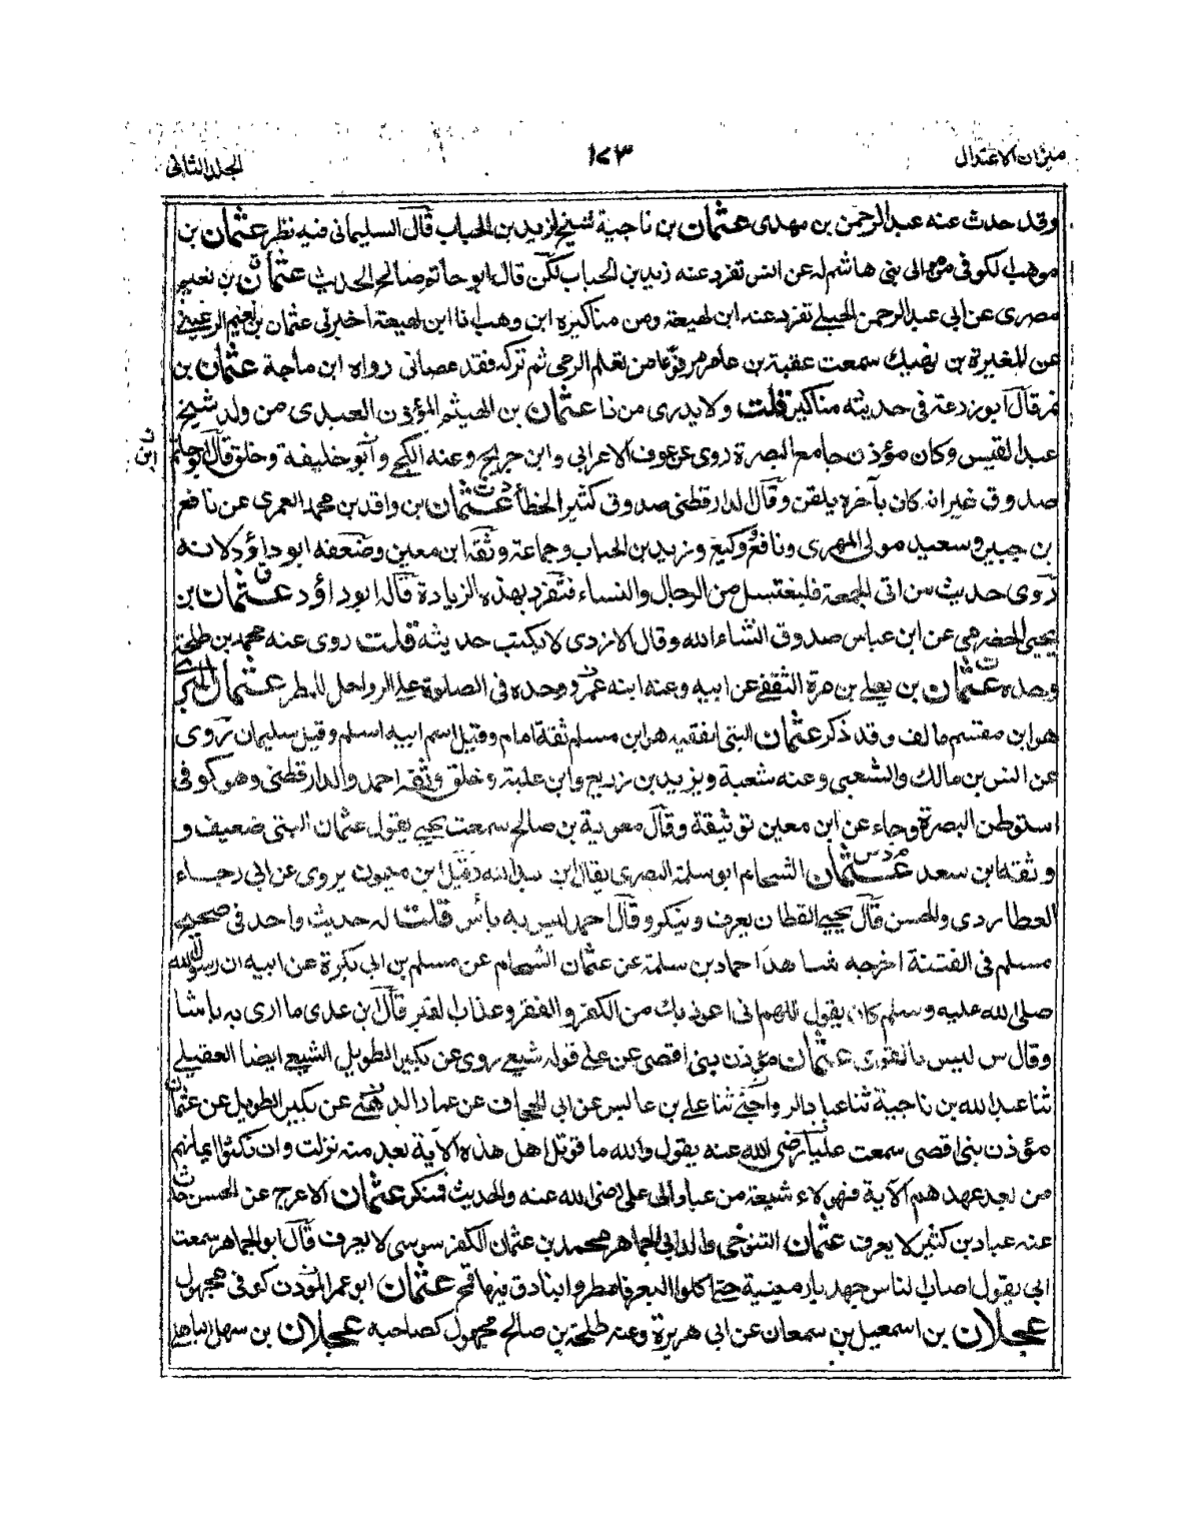 ميزان الاعتدال ١٧٣ الجلد الثانى
وقد حدث عنه عبد الرحمن بن مهدى عثمان بن ناجية شيخ لزيد بن الحباب قال السليمانى فيه نظر عثمان بن
موهب الكوفى مولى بنى هاشم له عن انس تفرد عنه زيد بن الحباب لكن قال ابو حاتم صالح الحديث عثمان بن نعيم
مصرى عن ابى عبد الرحمن الحبلى تفرد عنه ابن لهيعة ومن مناكيره ابن وهب انا ابن لهيعة اخبرنى عثمان بن نعيم الرعينى
عن المغيرة بن نهيك سمعت عقبة بن عامر مرفوعا من تعلم الرمى ثم تركه فقد عصانى رواه ابن ماجة عثمان بن
نمر قال ابو زرعة فى حديثه مناكير قلت ولا يدرى من ذا عثمان بن الهيثم المؤذن العبدى من ولد شيخ
عبد القيس وكان مؤذن جامع البصرة روى عن عوف الاعرابى وابن جريج وعنه الكجى وابو خليفة وخلق قال ابو حاتم
صدوق غير انه كان بآخره يلقن وقال الدارقطنى صدوق كثير الخطأ عثمان بن واقد بن محمد العمرى عن نافع
بن جبير وسعيد مولى المهرى ونافع وكيع وزيد بن الحباب وجماعة وثقه ابن معين وضعفه ابو داؤد لانه
روى حديث من اتى الجمعة فليغتسل من الرجال والنساء فتفرد بهذه الزيادة قاله ابو داؤد عثمان بن
يحيى الحضرمى عن ابن عباس صدوق انشاء الله وقال الازدى لا يكتب حديثه قلت روى عنه محمد بن طلحة
وحده عثمان بن يعلى بن مرة الثقفى عن ابيه وعنه ابنه عمرو وحده فى الصلوة على الرواحل للمطر عثمان البرى
هو ابن مقسم تالف وقد ذكر عثمان البتى الفقيه هو ابن مسلم ثقة امام وقيل اسم ابيه اسلم وقيل سليمان روى
عن انس بن مالك والشعبى وعنه شعبة ويزيد بن زريع وابن علية وخلق وثقه احمد والدارقطنى وهو كوفى
استوطن البصرة وجاء عن ابن معين توثيقة وقال معوية بن صالح سمعت يحيى يقول عثمان البتى ضعيف و
وثقه ابن سعد عثمان الشحام ابو سلمة البصرى يقال ابن عبد الله وقيل ابن ميمون يروى عن ابى رجاء
العطاردى والحسن قال يحيى القطان يعرف وينكر وقال احمد ليس به بأس قلت له حديث واحد فى صحيح
مسلم فى الفتنة اخرجه شاهدا حماد بن سلمة عن عثمان الشحام عن مسلم بن ابى بكرة عن ابيه ان رسول الله
صلى الله عليه وسلم كان يقول اللهم انى اعوذ بك من الكفر والفقر وعذاب القبر قال ابن عدى ما ارى به بأسا
وقال س ليس بالقوى عثمان مؤذن بنى اقصى عن على قوله شيع روى عن بكير الطويل الشيعى ايضا العقيلى
ثنا عبد الله بن ناجية ثنا عباد الرواجنى ثنا على بن عابس عن ابى الجحاف عن عمار الدهنى عن بكير الطويل عن عثمان
مؤذن بنى اقصى سمعت عليا رضى الله عنه يقول والله ما قوتل اهل هذه الآية بعد منذ نزلت وان نكثوا ايمانهم
من بعد عهدهم الآية فهؤلاء شيعة من عباد الى على رضى الله عنه والحديث فمنكر عثمان الاعرج عن الحسن حدث
عنه عباد بن كثير لا يعرف عثمان التنوخى والد ابى الجماهر محمد بن عثمان الكفرسوسى لا يعرف قال ابو الجماهر سمعت
ابى يقول اصاب الناس جهد بارمينية حتى اكلوا البعر فامطروا بنادق فيها قمح عثمان ابو عمر المؤذن كوفى مجهول
عجلان بن اسمعيل بن سمعان عن ابى هريرة وعنه طلحة بن صالح مجهول كصاحبه عجلان بن سهل الباهلى